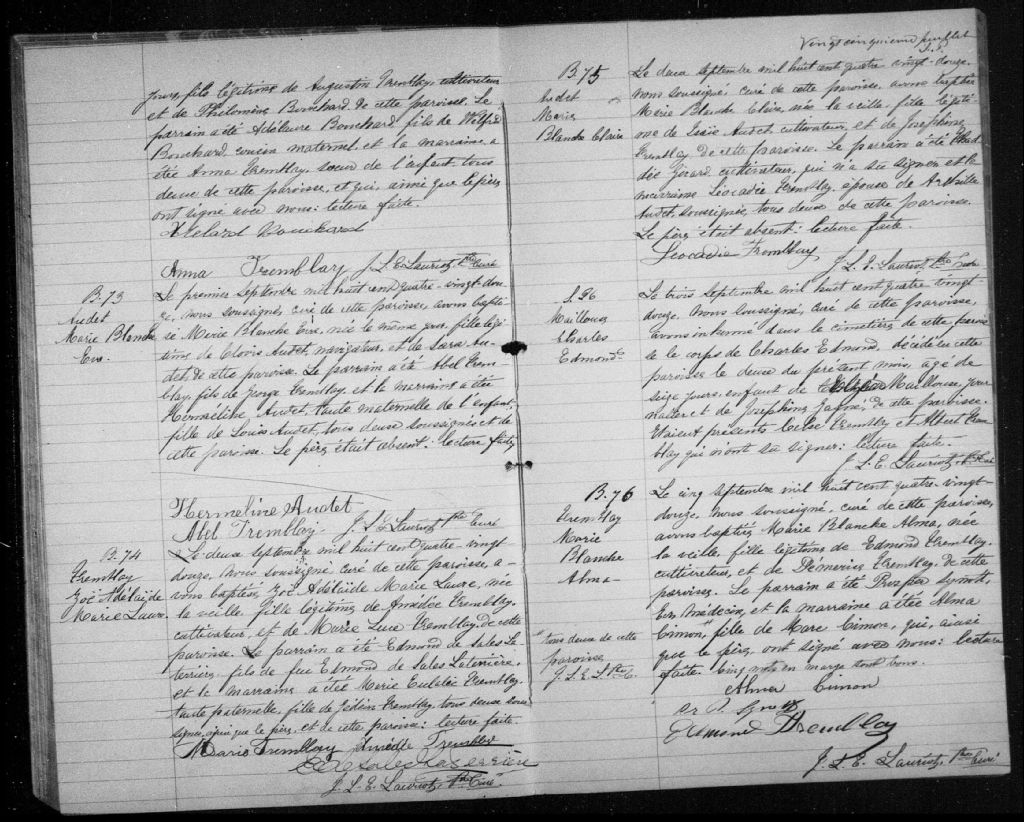 jour, fils légitime de Augustin Tremblay, cultivateur
et de Philomène Bouchard de cette paroisse. Le
parrain a été Adélaire Bouchard, fils de Wilfrid
Bouchard, cousin maternel et la marraine a
été Anna Tremblay, sœur de l'enfant, tous
deux de cette paroisse, et qui, ainsi que le père,
ont signé avec nous: lecture faite.
Bouchard
Anna Tremblay J. L. E. Lauriot, Ptre Curé
B. 73
Audet
Marie Blanche
Eva.
Le premier septembre mil huit cent quatre-vingt-dou-
ze, nous soussigné, curé de cette paroisse, avons bapti-
sé Marie Blanche Eva, née le même jour, fille légi-
time de Clovis Audet, navigateur, et de Sara Au-
det, de cette paroisse. Le parrain a été Abel Trem-
blay, fils de George Tremblay, et la marraine a été
Hermeline Audet, tante maternelle de l'enfant,
fille de Louis Audet, tous deux soussignés et de
cette paroisse. Le père était absent: lecture faite.
Hermeline Audet
Abel Tremblay J. L. E. Lauriot, Ptre Curé
B. 74
Tremblay
Zoé Adélaïde
Marie Laure.
Le deux septembre mil huit cent quatre-vingt
douze, nous soussigné curé de cette paroisse, a-
vons baptisé Zoé Adélaïde Marie Laure, née
la veille, fille légitime de Amédée Tremblay,
cultivateur, et de Marie Luce Tremblay, de cette
paroisse. Le parrain a été Edmond de Sales La-
terrière, fils de feu Edmond de Sales Laterrière,
et la marraine a été Marie Eulalie Tremblay,
tante paternelle, fille de Tremblay, tous deux sous-
signés, ainsi que le père, et de cette paroisse: lecture faite.
Marie Tremblay Amédée Tremblay
de Sales Laterrière
J. L. E. Lauriot, Ptre Curé.
Vingt cinquième feuillet
B. 75
Audet
Marie
Blanche Claire
Le deux septembre mil huit cent quatre-vingt-douze,
nous soussigné, curé de cette paroisse, avons baptisé
Marie Blanche Claire, née la veille, fille légiti-
me de Audet, cultivateur, et de Joséphine
Tremblay de cette paroisse. Le parrain a été
Girard cultivateur, qui n'a su signer et la
marraine Léocadie Tremblay, épouse de
Audet, soussignée, tous deux de cette paroisse.
Le père était absent: lecture faite.
Léocadie Tremblay
J. L. E. Lauriot, Ptre Curé
S. 26
Mailloux
Charles
Edmond
Le trois septembre mil huit cent quatre-vingt-
douze, nous soussigné, curé de cette paroisse,
avons inhumé dans le cimetière de cette parois-
se le corps de Charles Edmond, décédé en cette
paroisse le deux du présent mois, âgé de
seize jours, enfant de Mailloux, jour-
nalier et de Joséphine de cette paroisse.
Etaient présents Tremblay et Albert Trem-
blay qui n'ont su signer: lecture faite.
J. L. E. Lauriot, Ptre Curé
B. 76
Tremblay
Marie
Blanche
Alma
Le cinq septembre mil huit cent quatre-vingt-
douze, nous soussigné, curé de cette paroisse,
avons baptisé Marie Blanche Alma, née
la veille, fille légitime de Edmond Tremblay,
cultivateur, et de Démerise Tremblay, de cette
paroisse. Le parrain a été Prosper
Ecr, Médecin, et la marraine a été Alma
Cimon," fille de Marc Cimon, qui, ainsi
que le père, ont signé avec nous: lecture
faite. Cinq mots en marge sont bons.
"tous deux de cette
paroisse
J. L. E. L. Ptre C.
Alma Cimon
Edmond Tremblay
J. L. E. Lauriot, Ptre Curé